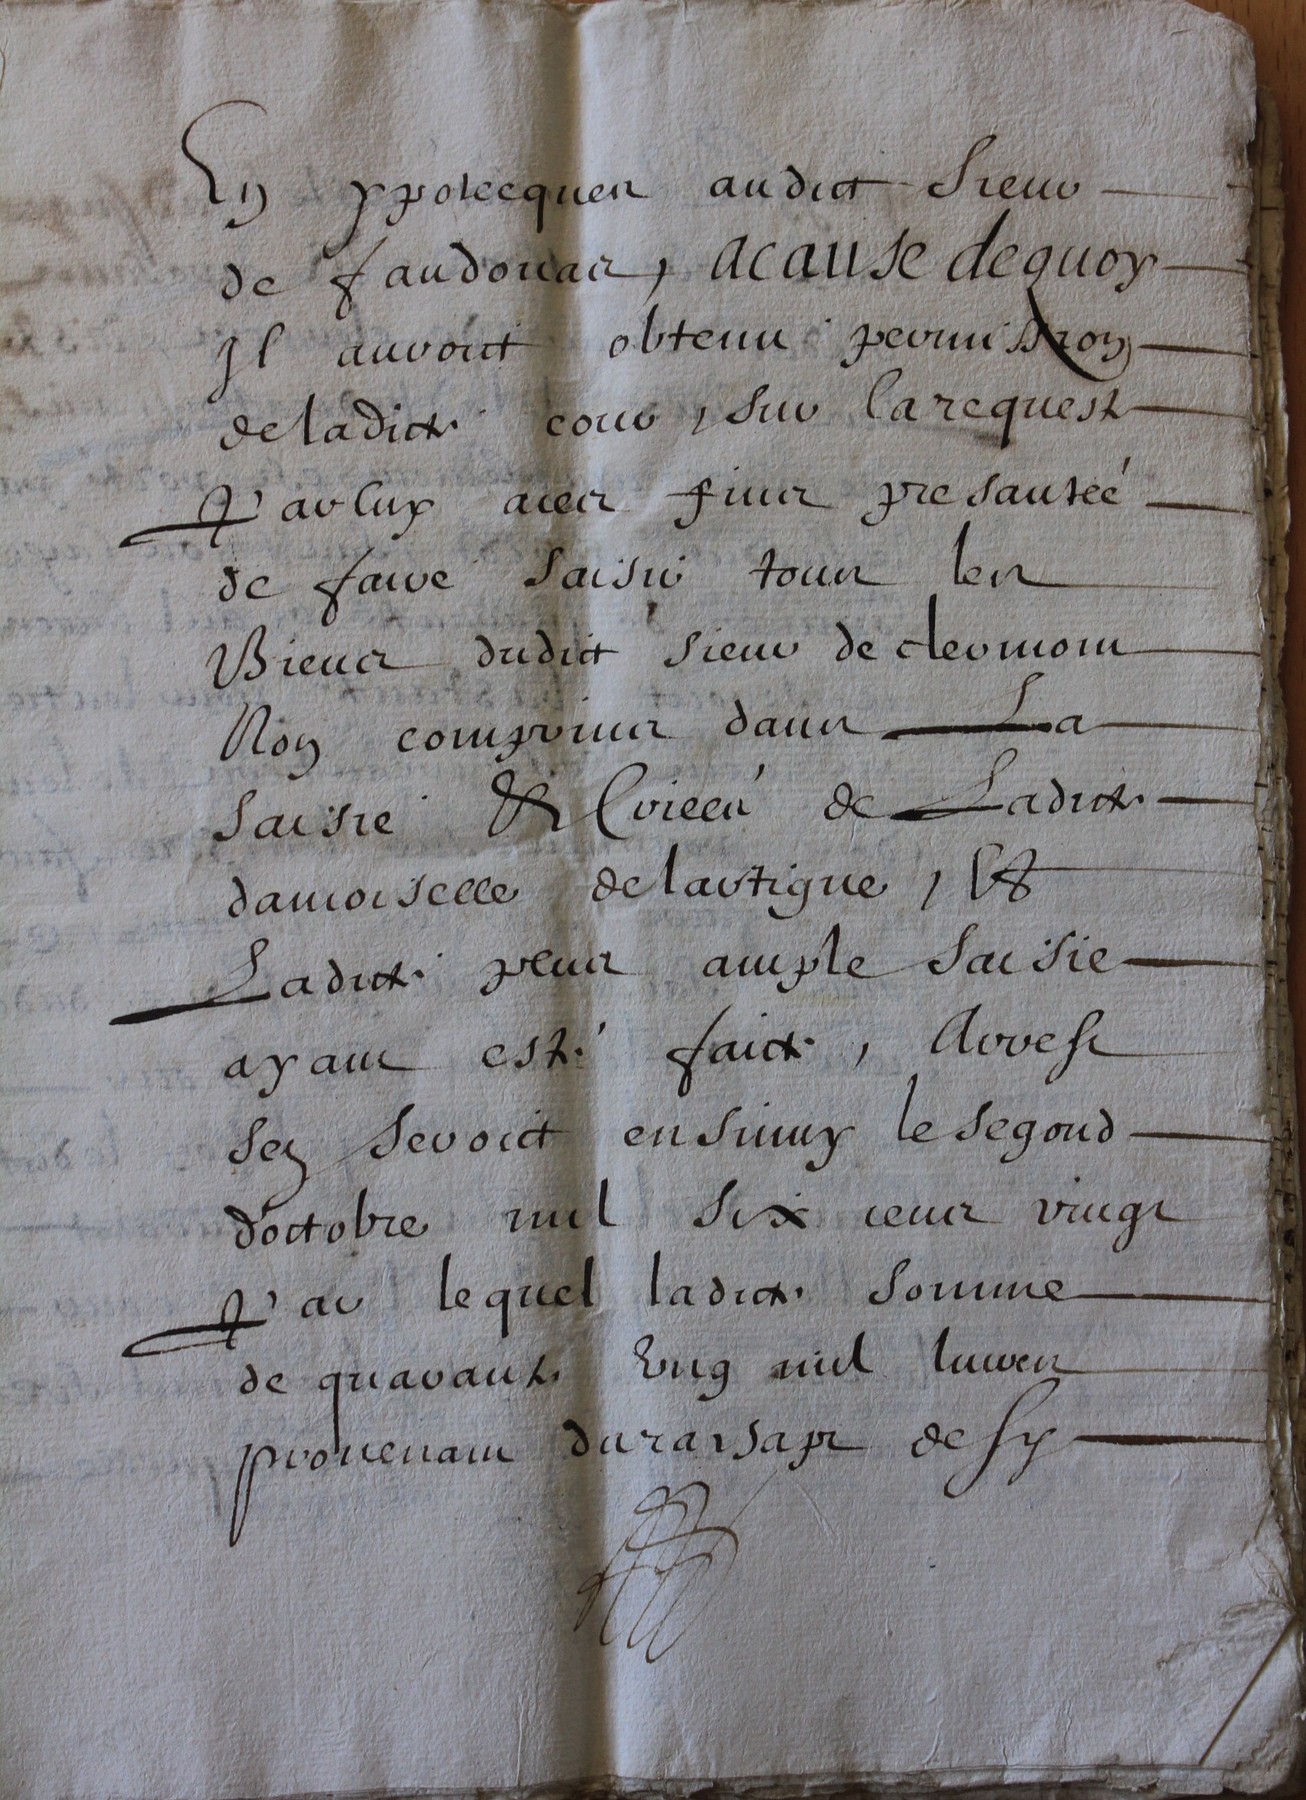 En ypotecques audict sieur
de faudouas, a cause de quoy
Il auroict obtenu permission
de ladicte cour, sur la requeste
Par luy a ces fins presantée
de faire saisir tous les
Biens dudict sieur de clermont
Non comprins dans La
saisie & Criées de Ladicte
damoiselle de lartigue, Et
Ladicte plus ample saisie
ayant esté faicte, Arrest
sen seroict ensuivy le segond
d'octobre mil six cens vingt
Par lequel ladicte somme
de quarante Ung mil livres
provenant du rasapt de